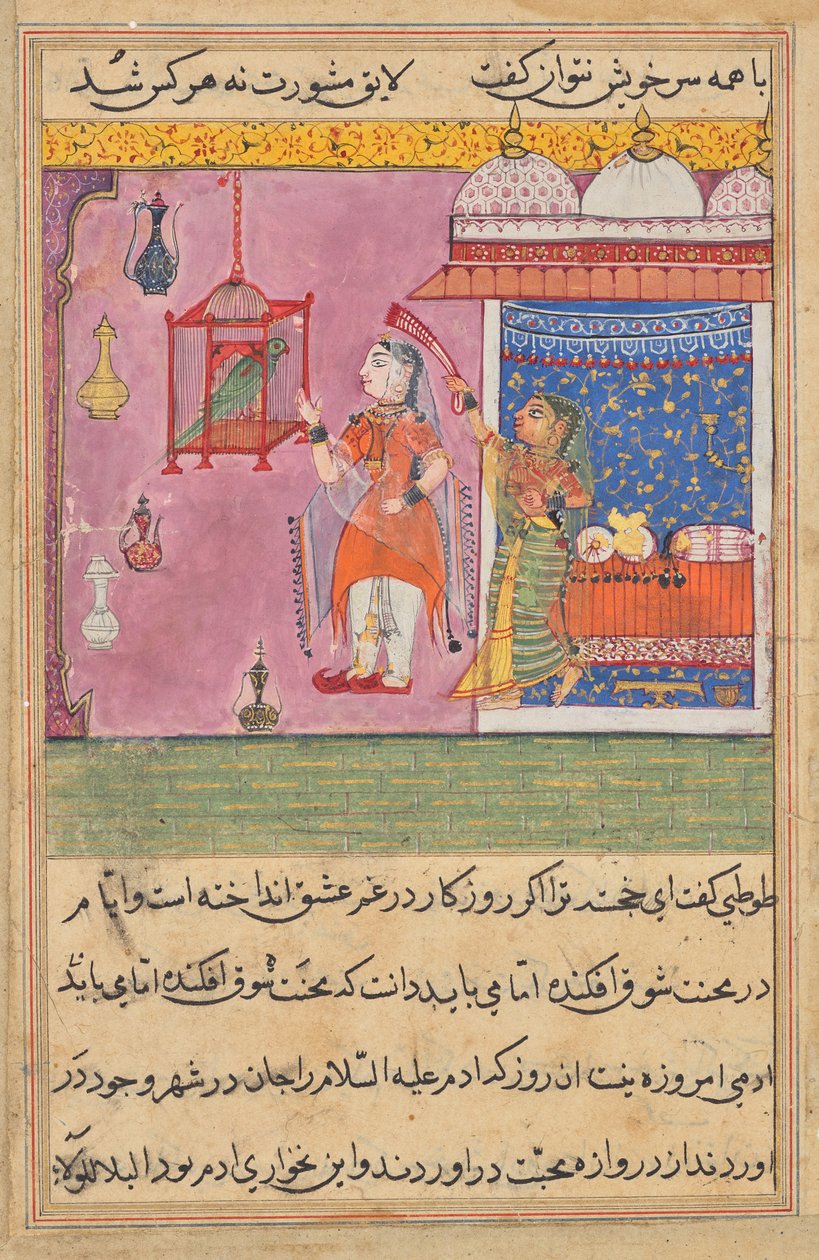 با همه سر خویش نتوان گفت لایق مشورت نه هر کس شد
طوطی گفت ای خجسته ترا اکر روزکار در غم عشق انداخته است و ایّام
در محنت شوق افکنده امّا می باید دانت که محنَت شوق افکنده امّا می باید
ادمی امروزه ینست ان روز که ادم علیه السّلام را جان در شهر وجود در
اوردند از دروازه محبّت در اوردند و این نخواری ادم بود البلا للولاء